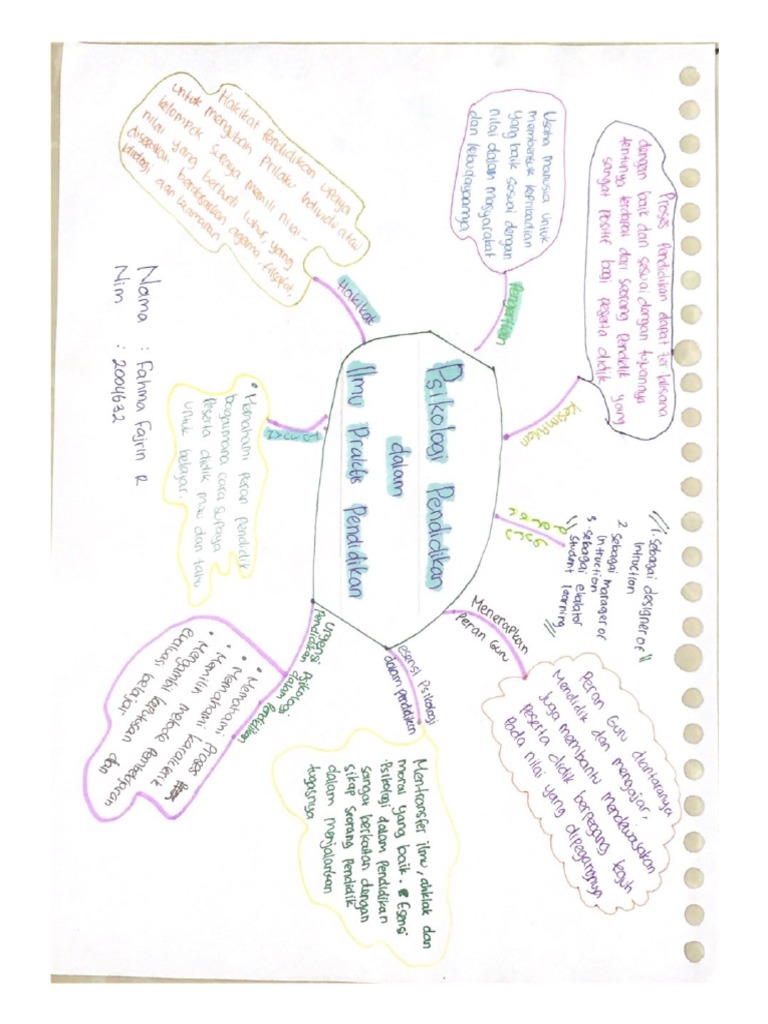 Psikologi Pendidikan
dalam
Ilmu Praktis Pendidikan
Hakikat
Hakikat Pendidikan upaya
untuk mengubah prilaku individu atau
kelompok supaya memili nilai-
nilai yang berbudi luhur, yang
disepakati berdasarkan agama, filsafat,
idiologi dan keamanan
Pengertian
Usaha manusia untuk
membentuk kepribadian
yang baik sesuai dengan
nilai dalam masyarakat
dan kebudayaannya
Kesimpulan
Proses Pendidikan dapat ter laksana
dengan baik dan sesuai dengan tujuannya
tentunya terdapat dari seorang Pendidik yang
sangat positif bagi peserta didik
Peran
guru
1. Sebagai designer of
intruction
2. sebagai manager of
intruction
3. sebagai
student learning
Menerapkan
peran Guru
Peran Guru diantaranya
Mendidik dan mengajar,
Juga membantu mendewasakan
peserta didik berpegang teguh
Pada nilai yang dipegangnya
esensi Psikologi
dalam pendidikan
Mentransfer ilmu, ahklak dan
moral yang baik. Esensi
Psikologi dalam Pendidikan
sangat berkaitan dengan
sikap seorang Pendidik
dalam menjalankan
tugasnya
Urgensi Psikologi
Pendidikan dalam
Pendidikan
• Memahami Proses
• Memahami karakteristik
• Memilih metode Pembelajaran
• Mengambil keputusan dan
evaluasi belajar
• Memahami peran pendidik
bagaimana cara supaya
Peserta didik mau dan tahu
untuk belajar.
Nama : Fahma Fajrin R
Nim : 2004632